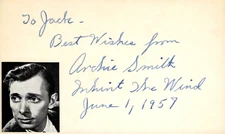 To Jack -
Best Wishes from
Archie Smith
Inherit The Wind
June 1, 1957